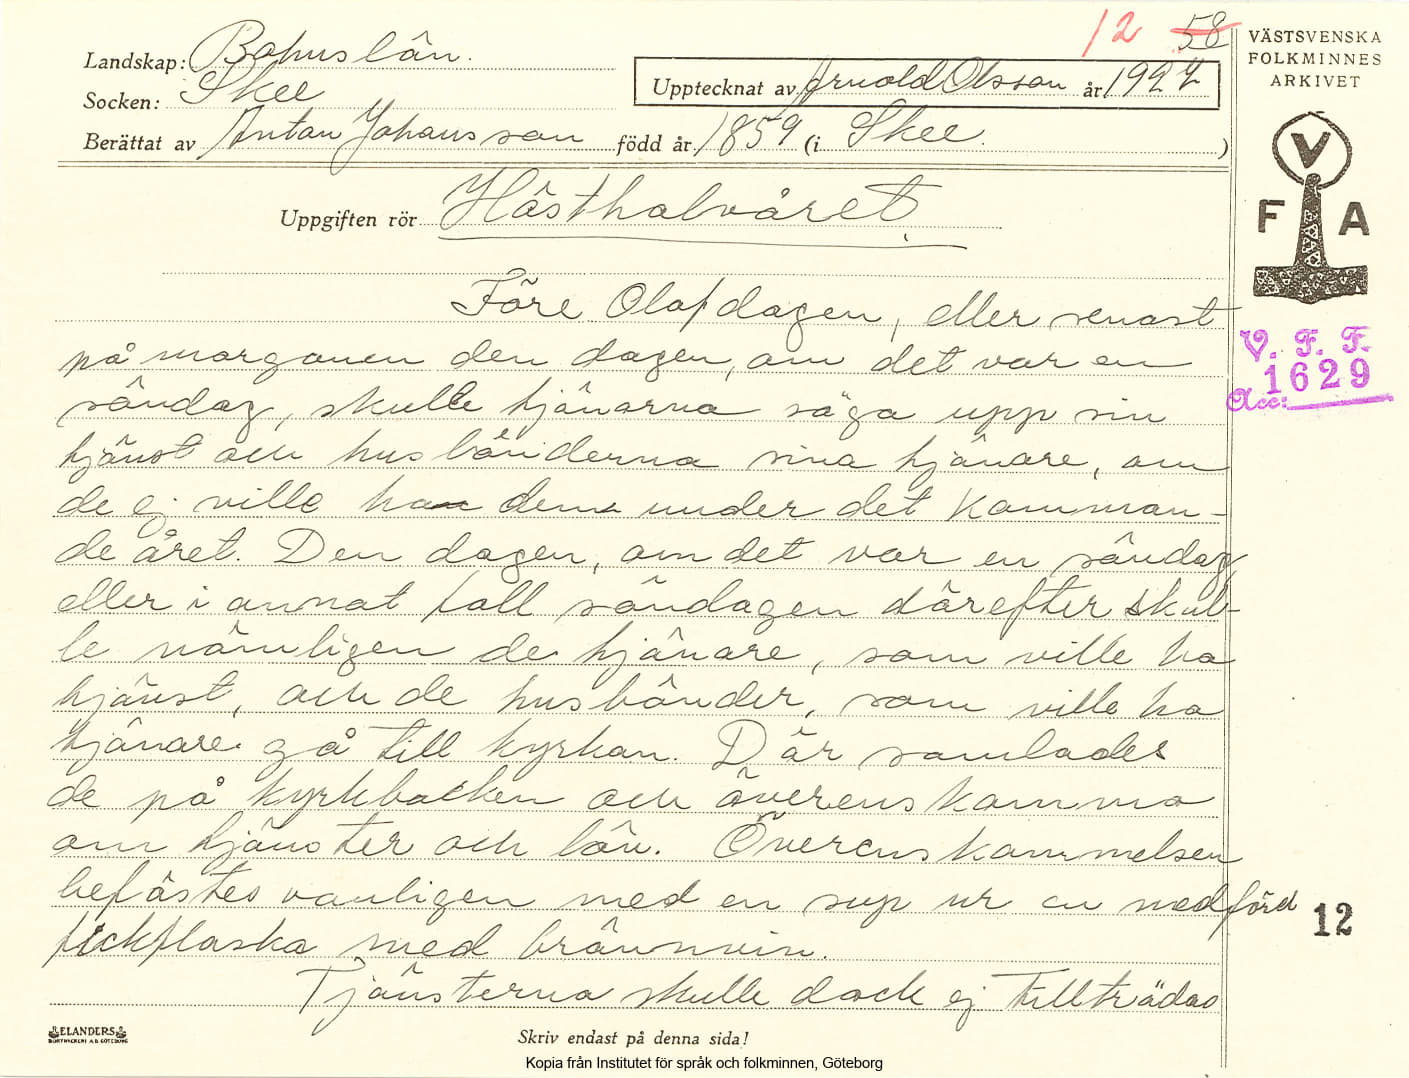 12 58
Landskap: Bohuslän.
Socken: Skee
Upptecknat av Arnold Olsson år 1927
Berättat av Anton Johansson född år 1859 (i Skee.)
Uppgiften rör Hästhalvåret.
VÄSTSVENSKA
FOLKMINNES
ARKIVET
V
F A
V. F. F.
Acc: 1629
Före Olofdagen, eller senast
på morgonen den dagen, om det var en
söndag, skulle tjänarna säga upp sin
tjänst och husbönderna sina tjänare, om
de ej ville ha dem under det komman-
de året. Den dagen, om det var en söndag
eller i annat fall söndagen därefter skul-
le nämligen de tjänare, som ville ha
tjänst, och de husbönder, som ville ha
tjänare gå till kyrkan. Där samlades
de på kyrkbacken och överenskommo
om tjänster och lön. Överenskommelsen
befästes vanligen med en sup ur en medförd
fickflaska med brännvin.
Tjänsterna skulle dock ej tillträdas
12
ELANDERS
BOKTRYCKERI A.B. GÖTEBORG
Skriv endast på denna sida!
Kopia från Institutet för språk och folkminnen, Göteborg